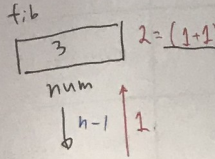 fib
3 2 = (1+1
num
n-1 1